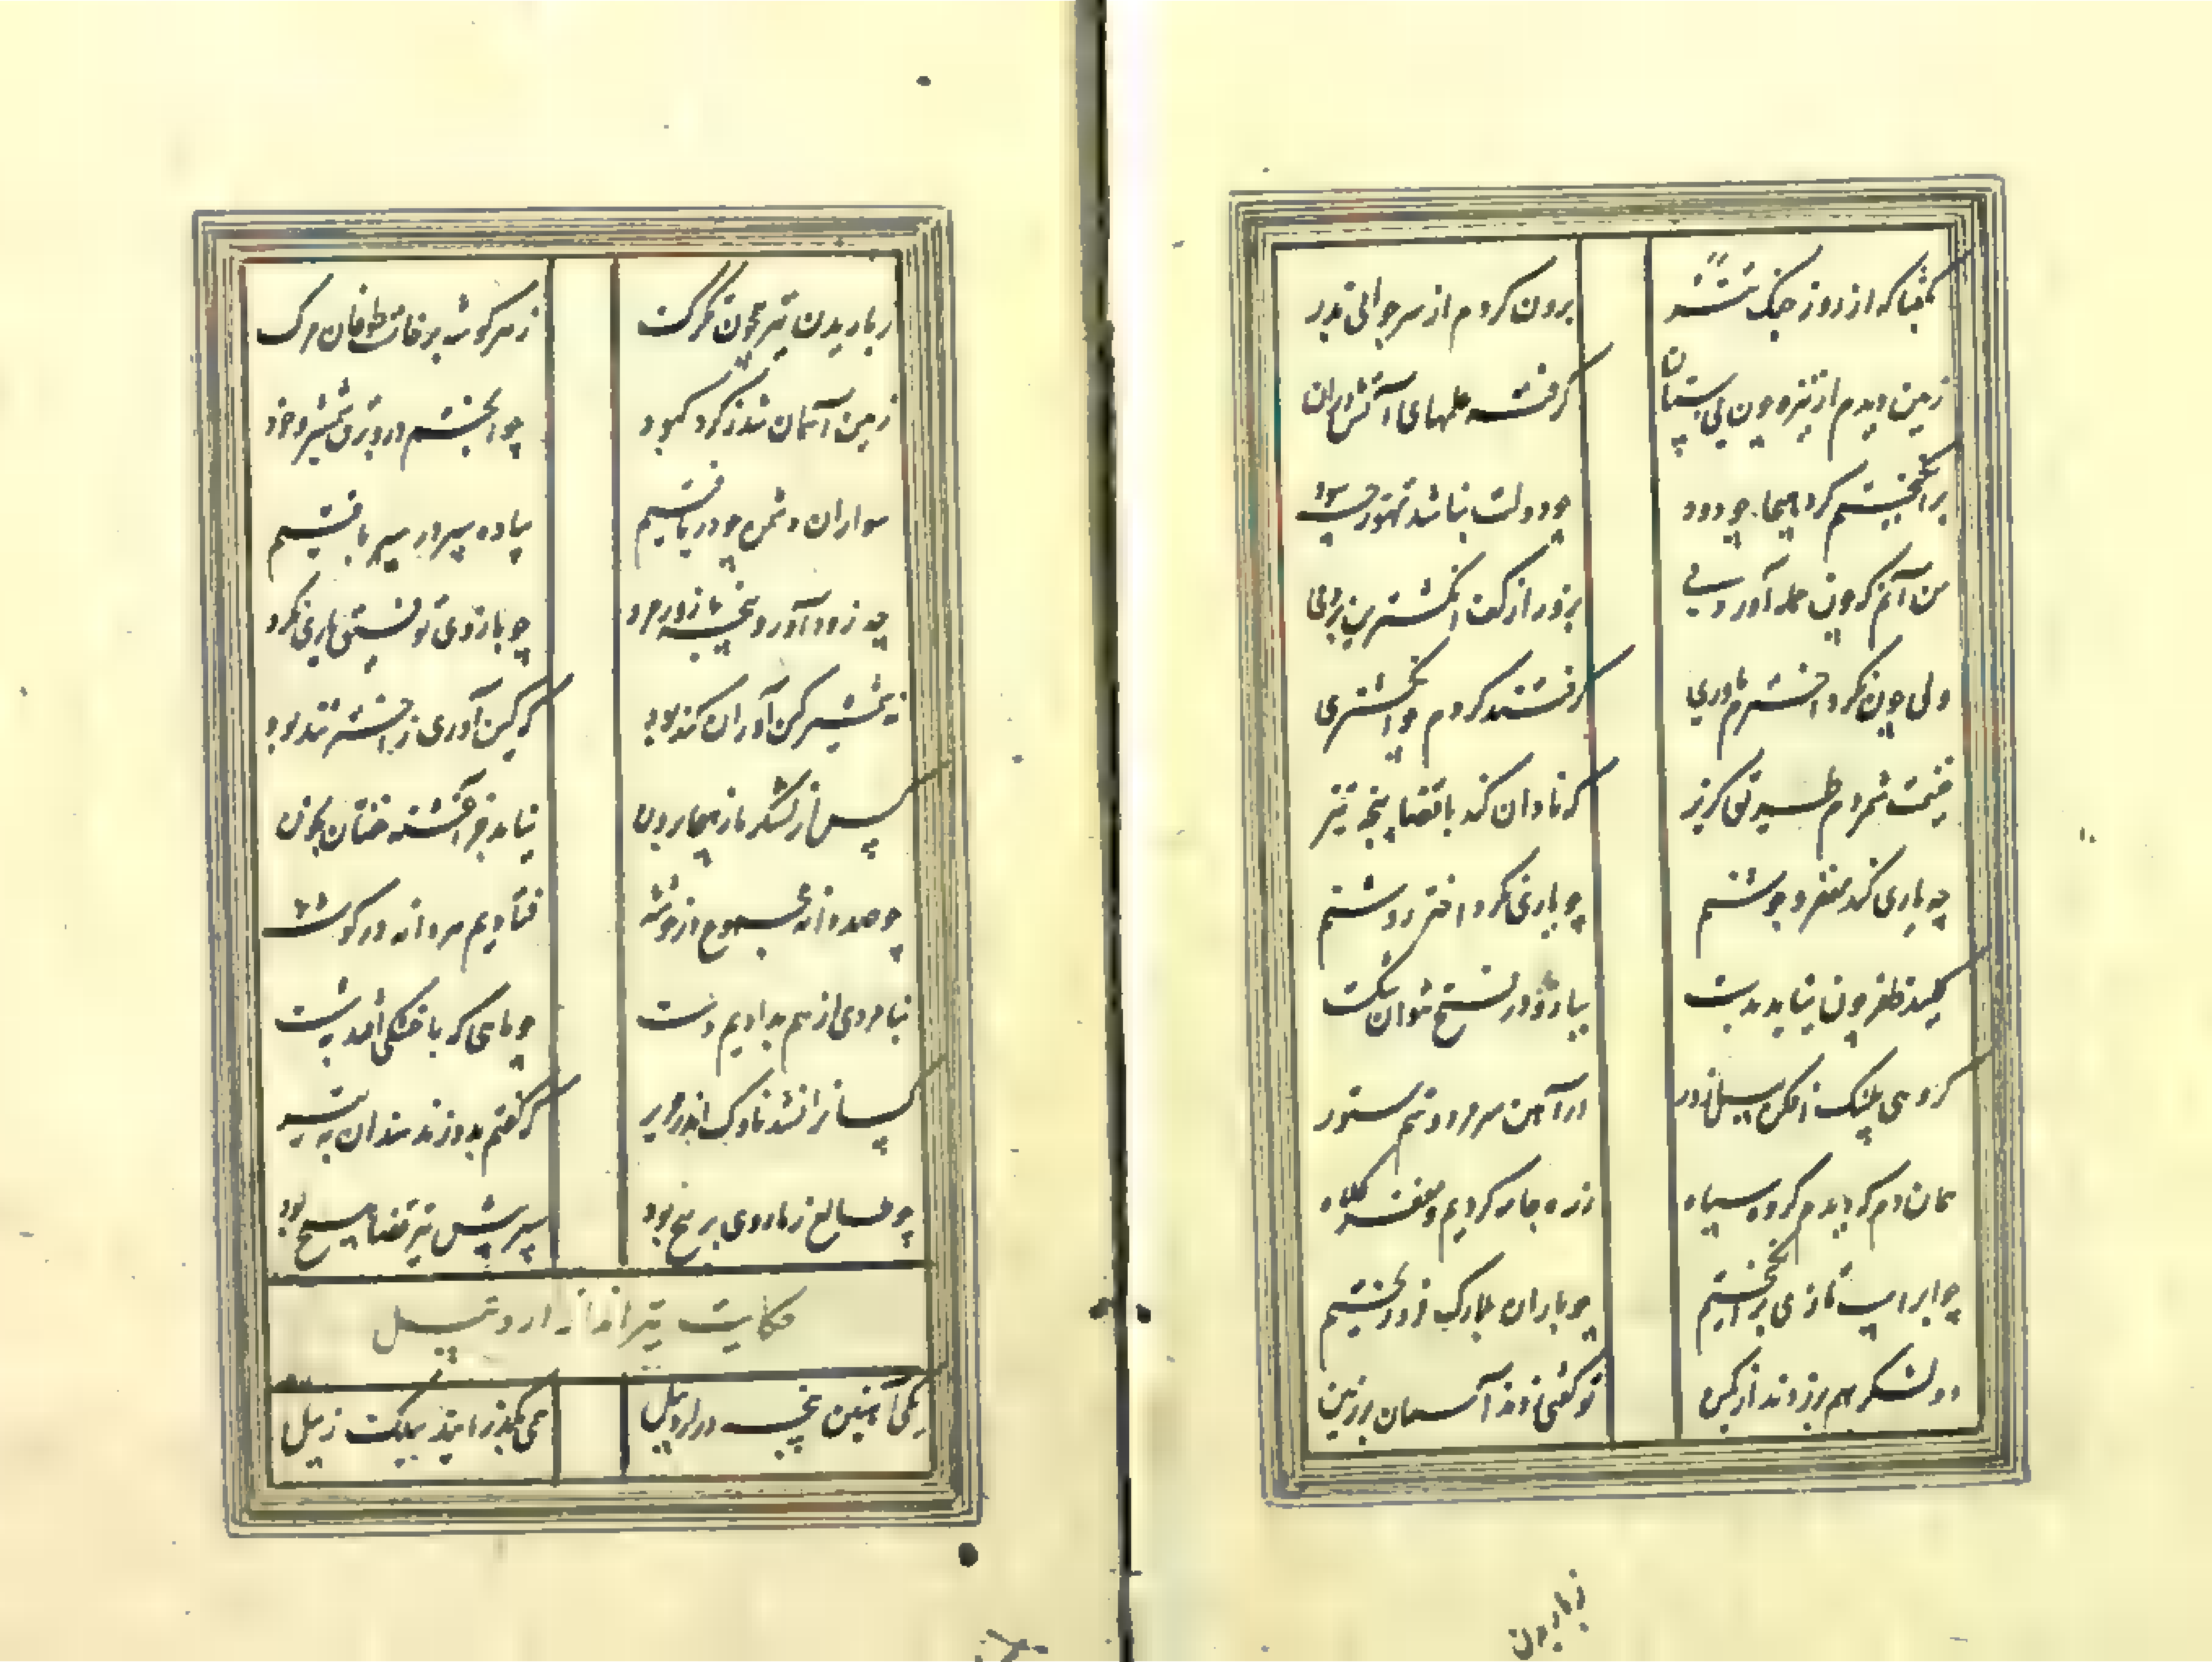 بگفتا که از روز جنگ تتر برون کردم از سر جوانی بدر
زمین دیدم از نیزه چون نی ستان گرفته علمهای آتش در آن
برانگیختم گرد هیجا چو دود چو دولت نباشد تهور چه سود
من آنم که چون حمله آوردمی برور از کف انگشترین بردمی
ولی چون نکرد اخترم یاوری گرفتند گردم چو انگشتری
غنیمت شمردم طریق گریز که نادان کند با قضا پنجه تیز
چه یاری کند مغفر و جوشنم چو یاری نکرد اختر روشنم
کلید ظفر چون نباید بدست ببازو در فتح نتوان شکست
گروهی پلنگ افکن پیل زور در آهن سر مرد و سم ستور
همان دم که دیدم گرد سپاه زره جامه کردیم و مغفر کلاه
چو ابر اسب تازی برانگیختیم چو باران بلارک فرو ریختیم
دو لشکر بهم بر زدند از کمین تو گفتی زدند آسمان بر زمین
زباریدن
زباریدن تیر همچون تگرگ زهر گوشه برخاست طوفان مرگ
زمین آسمان شد ز گرد کبود چو انجم در و برق شمشیر و خود
سواران دشمن چو دریافتیم پیاده سپر در سپر بافتیم
چه زور آورد پنجه زور مرد چو بازوی توفیق یاری نکرد
نه شمشیر کین آوران کند بود که کین آوری ز اختر تند بود
کس از لشکر ما ز هیجا برون نیامد جز آغشته خفتان بخون
چو صد دانه مجموع در خوشه فتادیم هر دانه در گوشه
بنامردی از هم بدادیم دست چو ماهی که با خشکی افتد بشست
کسانرا نشد ناوک اندر حریر که گفتم بدوزند سندان به تیر
چو طالع ز ما روی بر پیچ بود سپر پیش تیر قضا هیچ بود
حکایت تیرانداز اردبیل
یکی آهنین پنجه در اردبیل همی بگذرانید بیلک ز بیل